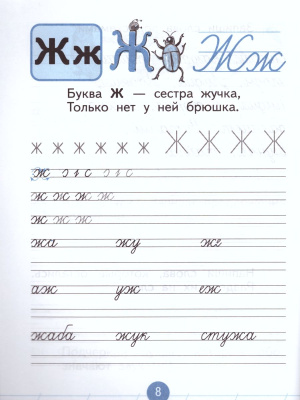 Жж Ж Жж
Буква Ж — сестра жучка,
Только нет у ней брюшка.
Ж Ж Ж Ж Ж Ж Ж Ж Ж Ж
ж
ж ж ж ж
ж ж ж
жа жу же
аж уж еж
жаба жук стужа
8